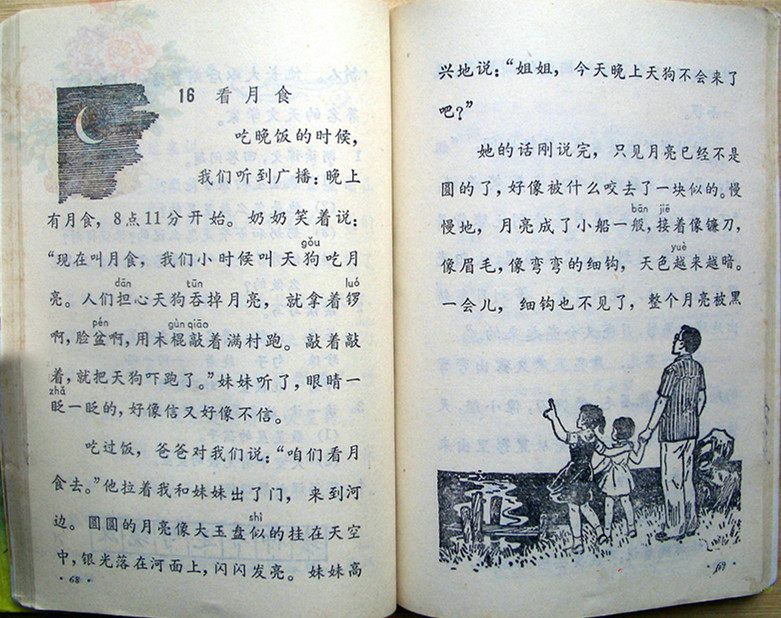 16 看月食
吃晚饭的时候，
我们听到广播：晚上
有月食，8点11分开始。奶奶笑着说：
gǒu
“现在叫月食，我们小时候叫天狗吃月
dān tūn luó
亮。人们担心天狗吞掉月亮，就拿着锣
pén gùn qiāo
啊，脸盆啊，用木棍敲着满村跑。敲着敲
着，就把天狗吓跑了。”妹妹听了，眼睛一
zhǎ
眨一眨的，好像信又好像不信。
吃过饭，爸爸对我们说：“咱们看月
食去。”他拉着我和妹妹出了门，来到河
shì
边。圆圆的月亮像大玉盘似的挂在天空
中，银光落在河面上，闪闪发亮。妹妹高
·68·
兴地说：“姐姐，今天晚上天狗不会来了
吧？”
她的话刚说完，只见月亮已经不是
圆的了，好像被什么咬去了一块似的。慢
bān jiē
慢地，月亮成了小船一般，接着像镰刀，
yuè
像眉毛，像弯弯的细钩，天色越来越暗。
一会儿，细钩也不见了，整个月亮被黑
·69·